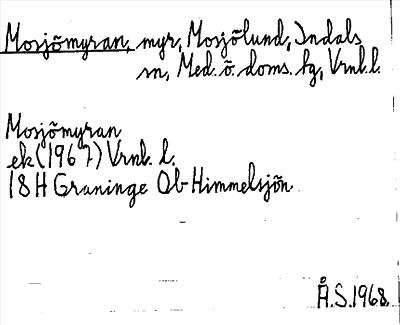 Mosjömyran, myr, Mosjölund, Indals
sn, Med. ö. doms. hg, Vrnl. l.
Mosjömyran
ek (1967) Vrnl. l.
18 H Graninge Ob Himmelsjön
Å.S. 1968.